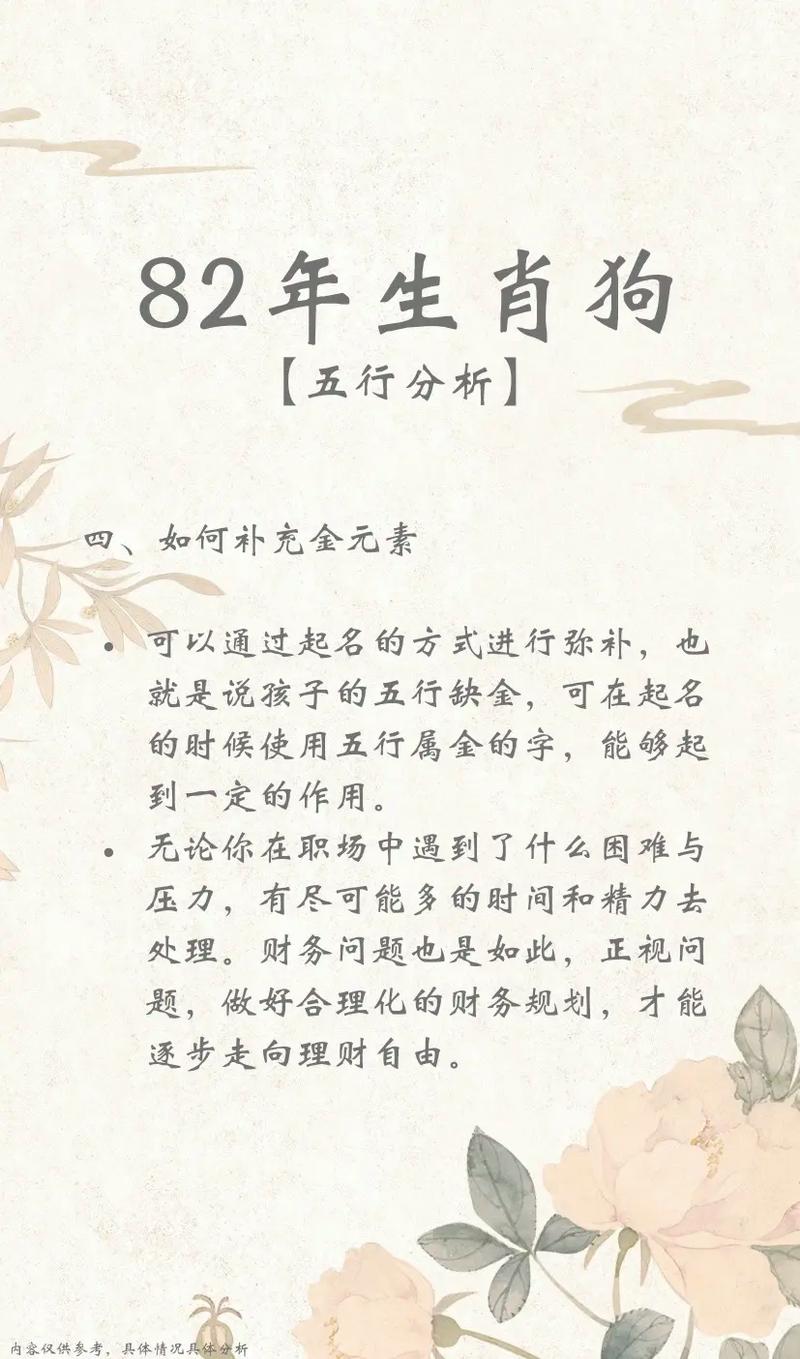 82年生肖狗
【五行分析】
四、如何补充金元素
• 可以通过起名的方式进行弥补，也
就是说孩子的五行缺金，可在起名
的时候使用五行属金的字，能够起
到一定的作用。
• 无论你在职场中遇到了什么困难与
压力，有尽可能多的时间和精力去
处理。财务问题也是如此，正视问
题，做好合理化的财务规划，才能
逐步走向理财自由。
内容仅供参考，具体情况具体分析